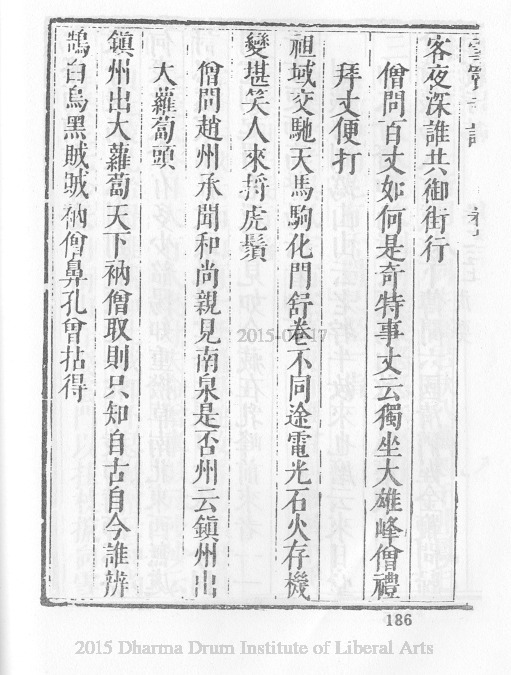 客夜深誰共御街行
僧問百丈如何是奇特事丈云獨坐大雄峰僧禮
拜丈便打
祖域交馳天馬駒化門舒卷不同途電光石火存機
變堪笑人來捋虎鬚
僧問趙州承聞和尚親見南泉是否州云鎮州出
大蘿蔔頭
鎮州出大蘿蔔天下衲僧取則只知自古自今誰辨
鵠白烏黑賊賊衲僧鼻孔曾拈得
186
2015 Dharma Drum Institute of Liberal Arts